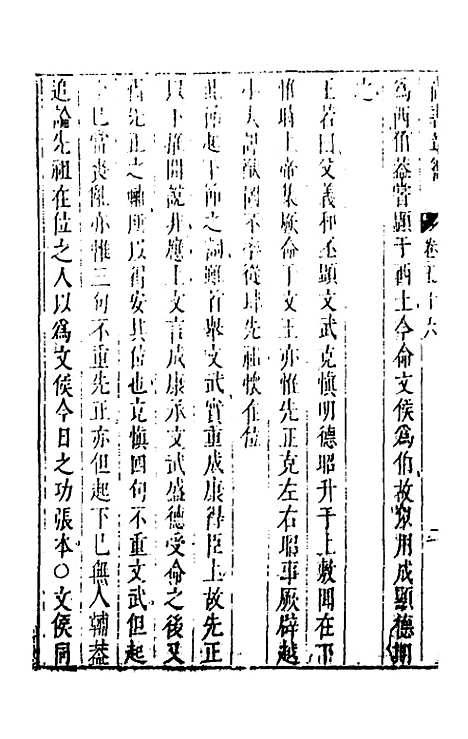 尚書 卷二十六
為西伯葢嘗顯于西土今命文侯為伯故欲用成顯德期
之
王若曰父義和丕顯文武克慎明德昭升于上敷聞在下
惟時上帝集厥命于文王亦惟先正克左右昭事厥辟越
小大謀猷罔不率從肆先祖懷在位
此節起下節之詞雖首舉文武實重成康得臣上故先正
以下推開說非應上文言成康承文武盛德受命之後又
先正之 安其位也克慎四句不重文武但起
下已當喪亂亦惟三句不重先正亦但起下已無人輔葢
追論先祖在位之人以為文侯今日之功張本○文侯同